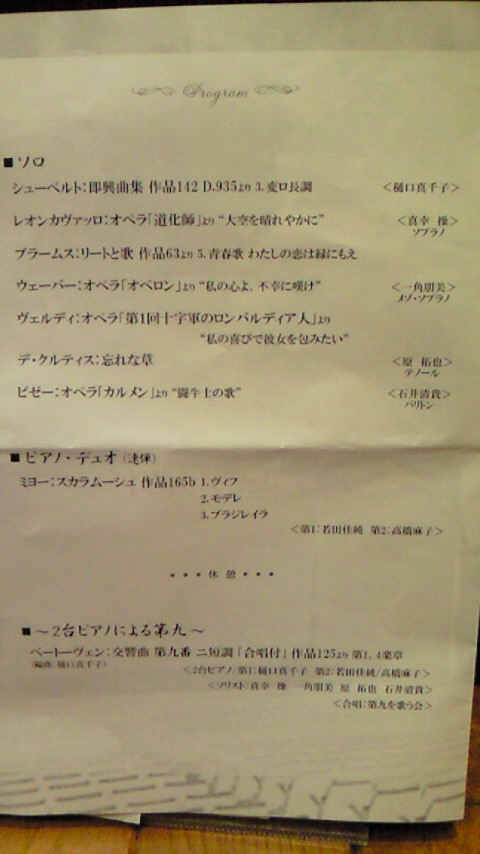 Program
■ソロ
シューベルト：即興曲集 作品142 D.935より 3. 変ロ長調 ＜樋口真千子＞
レオンカヴァッロ：オペラ「道化師」より “大空を晴れやかに” ＜真幸 操＞
ソプラノ
ブラームス：リートと歌 作品63より 5. 青春歌 わたしの恋は緑にもえ
ウェーバー：オペラ「オベロン」より “私の心よ、不幸に嘆け” ＜一角朋美＞
メゾ・ソプラノ
ヴェルディ：オペラ「第1回十字軍のロンバルディア人」より
“私の喜びで彼女を包みたい”
デ・クルティス：忘れな草 ＜原 拓也＞
テノール
ビゼー：オペラ「カルメン」より “闘牛士の歌” ＜石井清貴＞
バリトン
■ピアノ・デュオ（連弾）
ミヨー：スカラムーシュ 作品165b 1. ヴィフ
2. モデレ
3. ブラジレイラ
＜第1：若田佳純 第2：高橋麻子＞
＊＊＊ 休 憩 ＊＊＊
■～2台ピアノによる第九～
ベートーヴェン：交響曲 第九番 ニ短調「合唱付」作品125より 第1、4楽章
（編曲 樋口真千子）
＜2台ピアノ/第1：樋口真千子 第2：若田佳純/高橋麻子＞
＜ソリスト：真幸 操 一角朋美 原 拓也 石井清貴＞
＜合唱：第九を歌う会＞